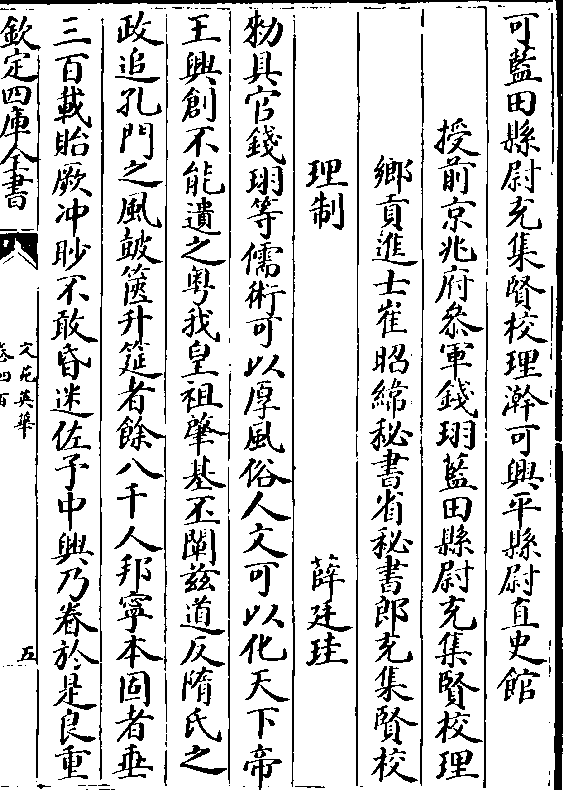 可藍田縣尉充集賢校理澣可興平縣尉直史館
授前京兆府叅軍錢珝藍田縣尉充集賢校理
鄉貢進士崔昭緯秘書省秘書郎充集賢校
理制 薛廷珪
勑具官錢珝等儒術可以厚風俗人文可以化天下帝
王興創不能遺之粤我皇祖肇基丕闡兹道反隋氏之
政追孔門之風皷篋升筵者餘八千人邦寧本固者垂
三百載貽厥冲眇不敢昏迷佐予中興乃眷於是良重
欽定四庫全書
文苑英華
卷四百
五